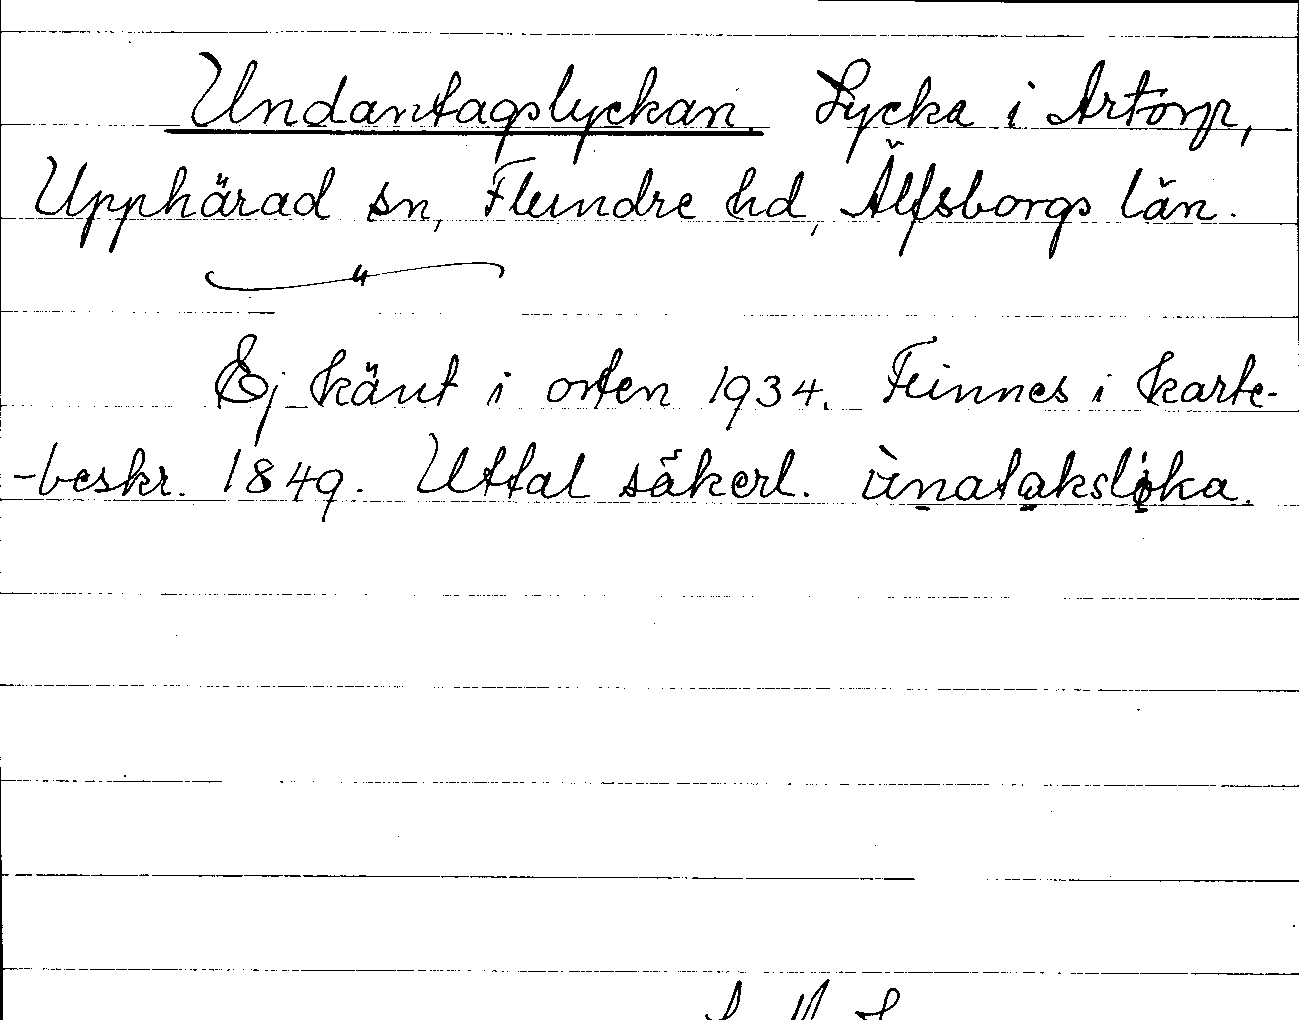 Undantagslyckan. Lycka i Artorp,
Upphärad sn, Flundre hd, Älfsborgs län.
"
Ej känt i orten 1934. Finnes i karte-
-beskr. 1849. Uttal säkerl.